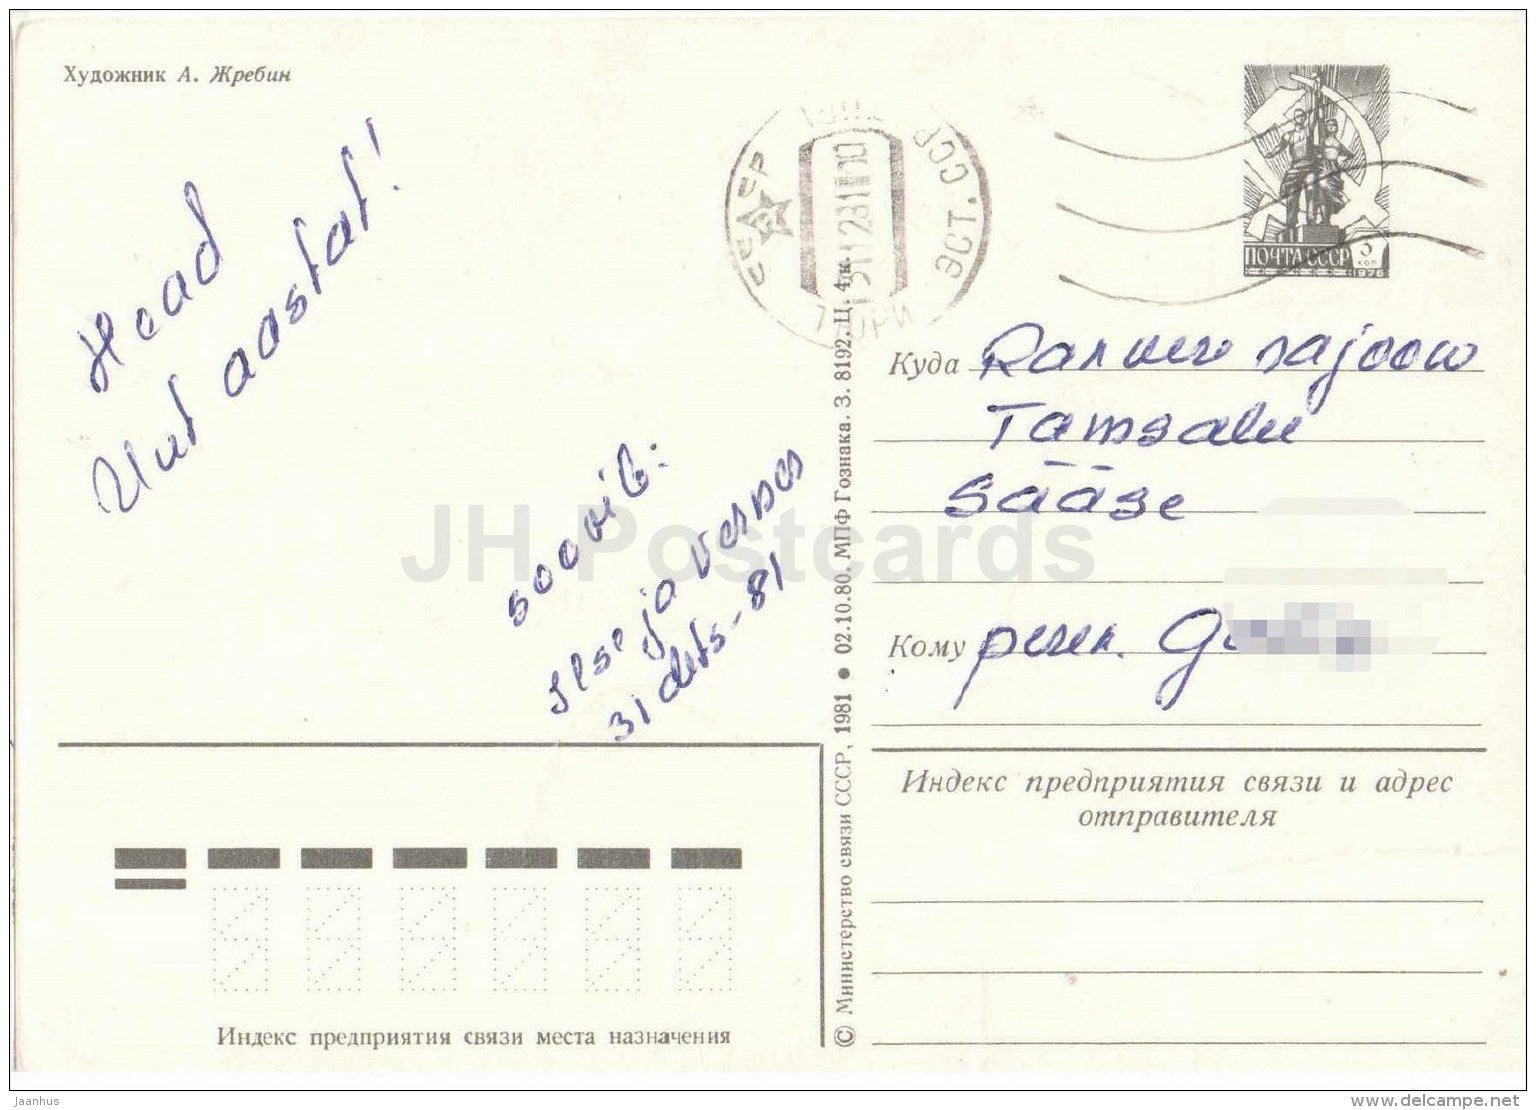 Художник А. Жребин
Head
Uut aastat!
soovib:
Ilse ja
31 dets-81
ЭСТ. ССР
ПОЧТА СССР
3
КОП
1976
Куда
rajoon
Tamsalu
Sääse
Кому peren. G
Индекс предприятия связи и адрес
отправителя
Индекс предприятия связи места назначения
© Министерство связи СССР, 1981 ● 02.10.80. МПФ Гознака. З. 8192. Ц. 4 к.
JH Postcards
Jaanhus
www.delcampe.net